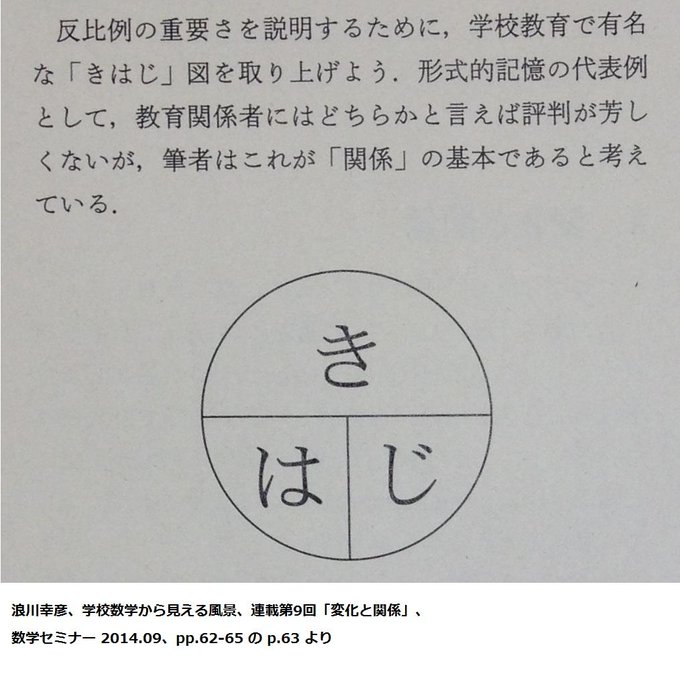 反比例の重要さを説明するために，学校教育で有名
な「きはじ」図を取り上げよう．形式的記憶の代表例
として，教育関係者にはどちらかと言えば評判が芳し
くないが，筆者はこれが「関係」の基本であると考え
ている．
き
は
じ
浪川幸彦、学校数学から見える風景、連載第9回「変化と関係」、
数学セミナー 2014.09、pp.62-65 の p.63 より